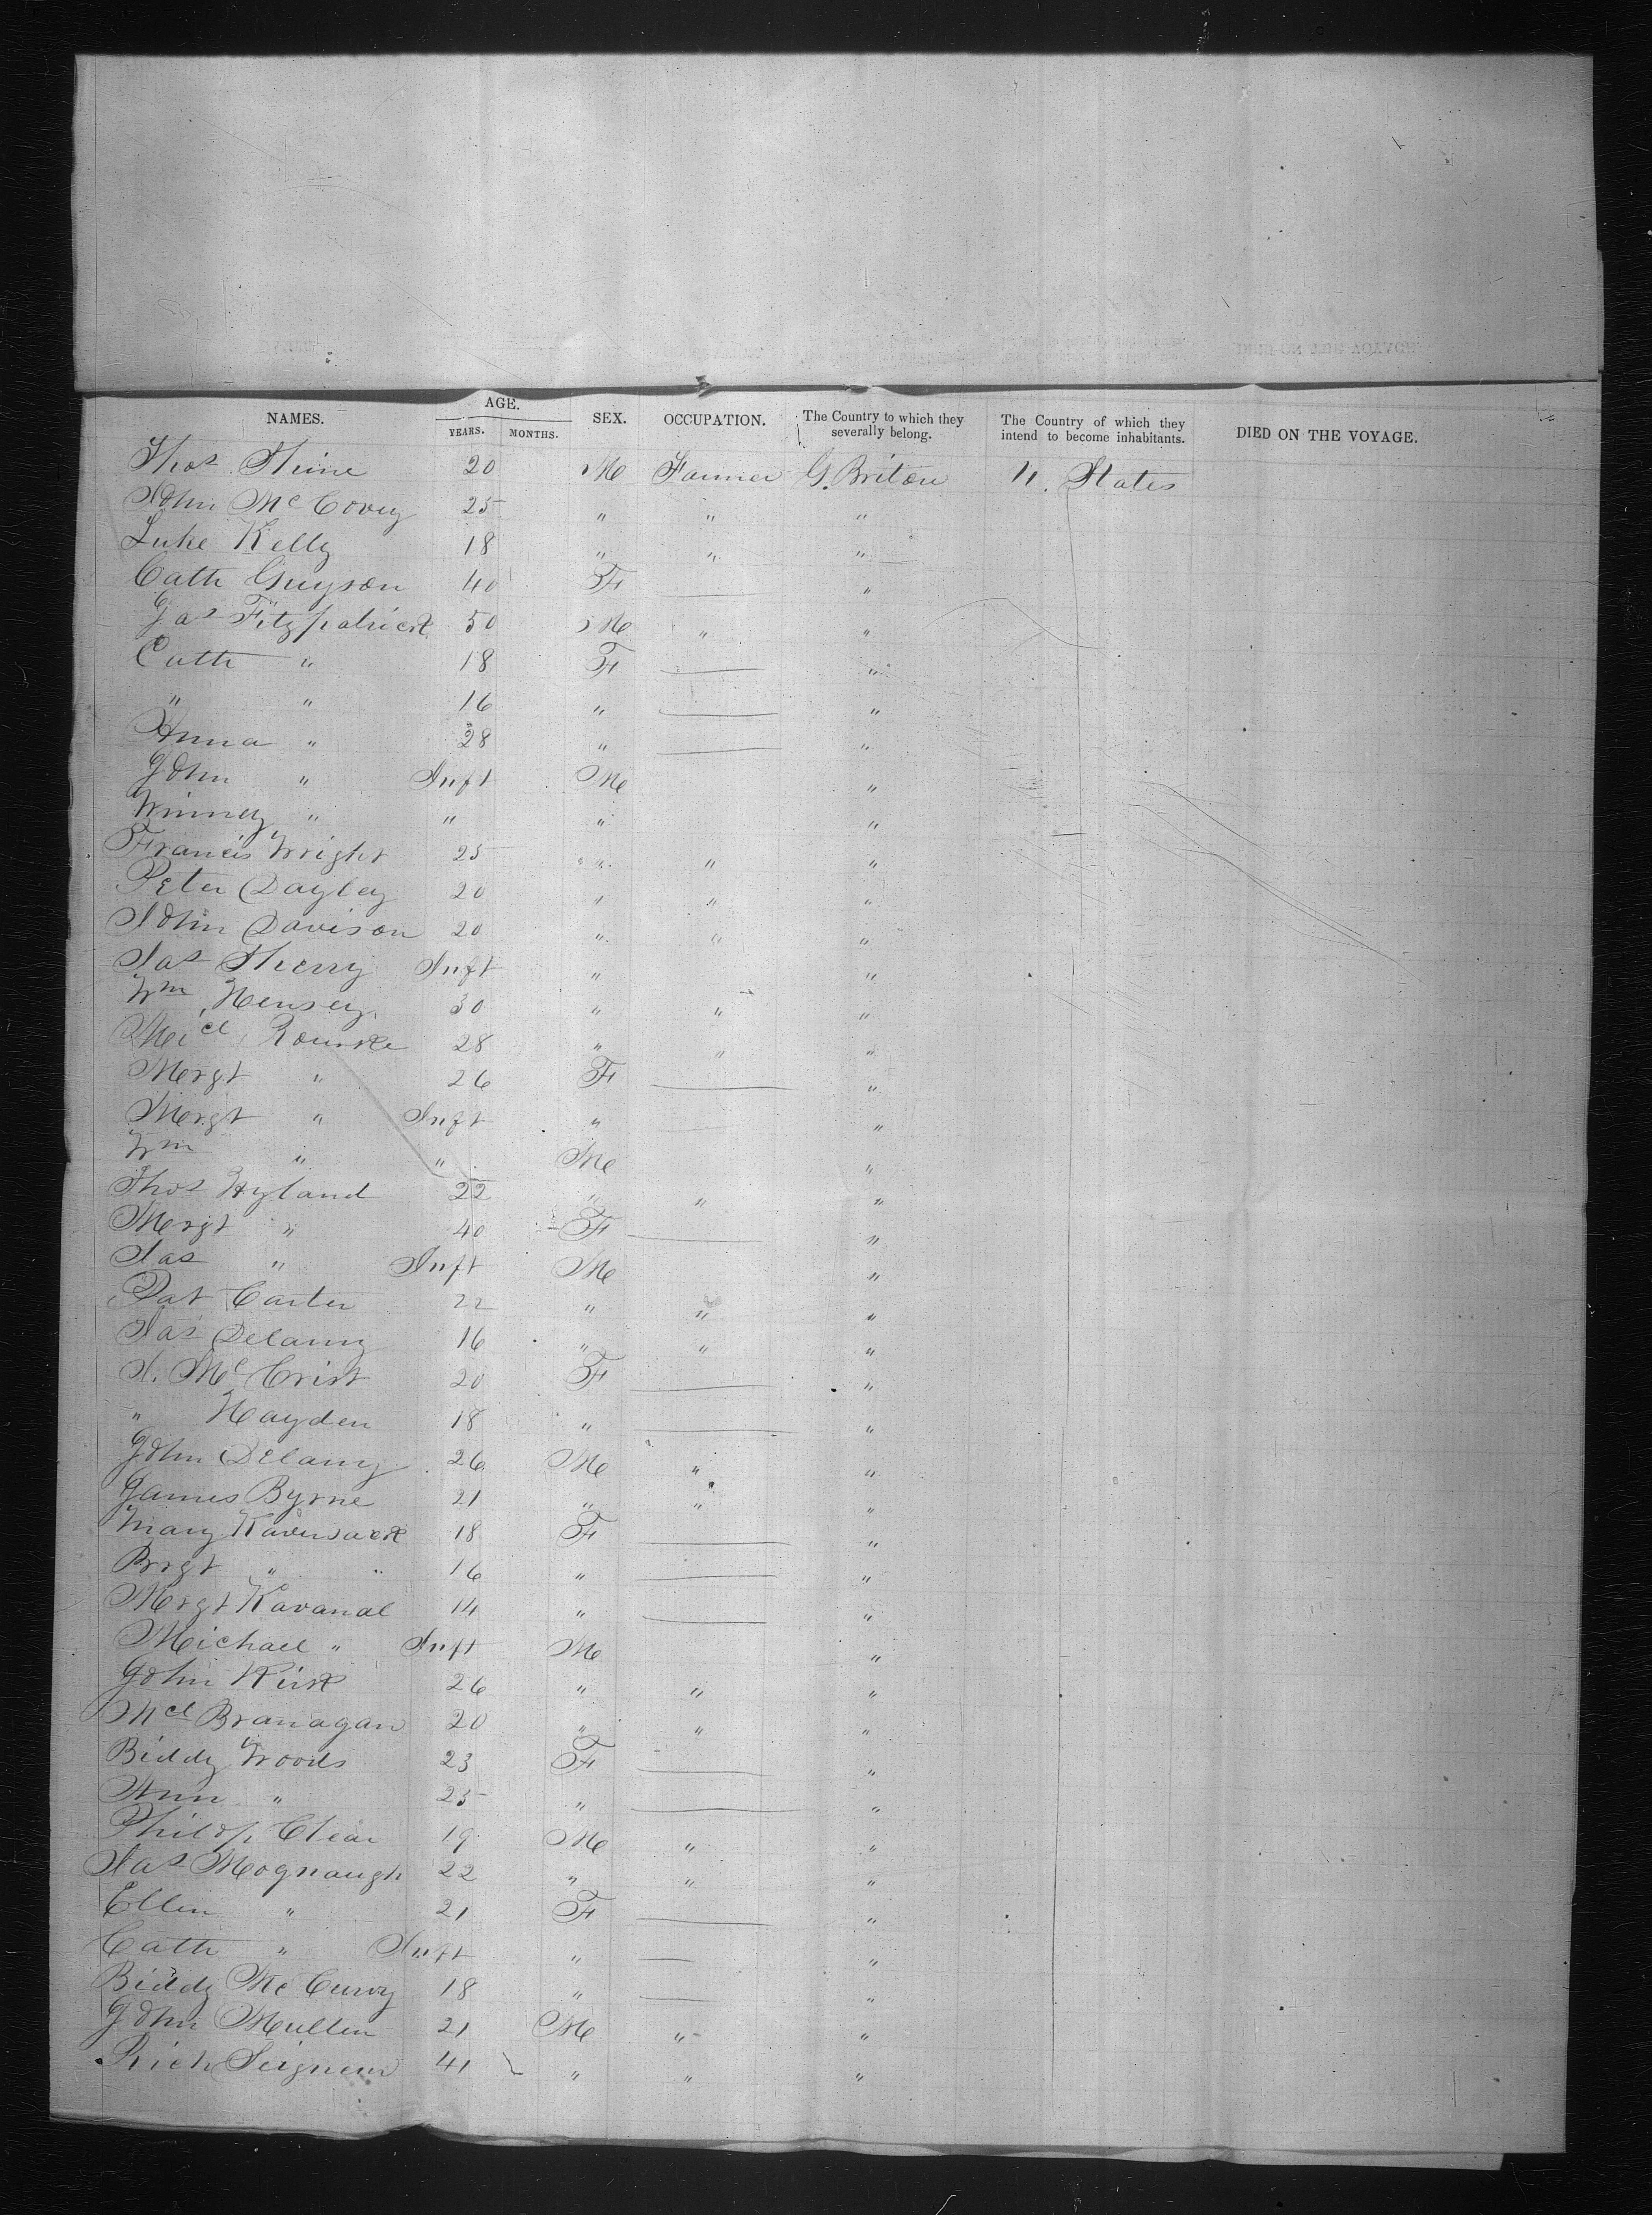 NAMES. AGE. YEARS. MONTHS. SEX. OCCUPATION. The Country to which they severally belong. The Country of which they intend to become inhabitants. DIED ON THE VOYAGE.
Thos 20 M Farmer G. Briton U. States
John McCovey 25 " " "
Luke Kelly 18 " " "
Cath Guyson 40 F — "
Jas Fitzpatrick 50 M " "
Cath " 18 F — "
" " 16 " — "
Anna " 28 " — "
John " Inft M "
Winney " " " "
Francis Wright 25 " " "
Peter Dayley 20 " " "
John Davison 20 " " "
Jas Sherry Inft " "
Wm Hensey 30 " " "
Micl Rourke 28 " " "
Mergt " 26 F — "
Mergt " Inft " "
Wm " " M "
Thos Hyland 22 " " "
Mergt " 40 F — "
Jas " Inft M "
Pat Carter 22 " " "
Jas Delanny 16 " " "
J. McCrist 20 F — "
" Hayden 18 " — "
John Delany 26 M " "
James Byrne 21 " " "
Mary 18 F — "
Brgt " " 16 " — "
Mergt Kavanal 14 " — "
Michael " Inft M "
John Kirk 26 " " "
Mcl Branagan 20 " " "
Biddy Woods 23 F — "
Ann " 25 " — "
Philop Clear 19 M " "
Jas Mognaugh 22 " " "
Ellin " 21 F — "
Cath " Inft " — "
Biddy McCurvy 18 " — "
John Mullen 21 M " "
Rich Seigneur 41 " " "